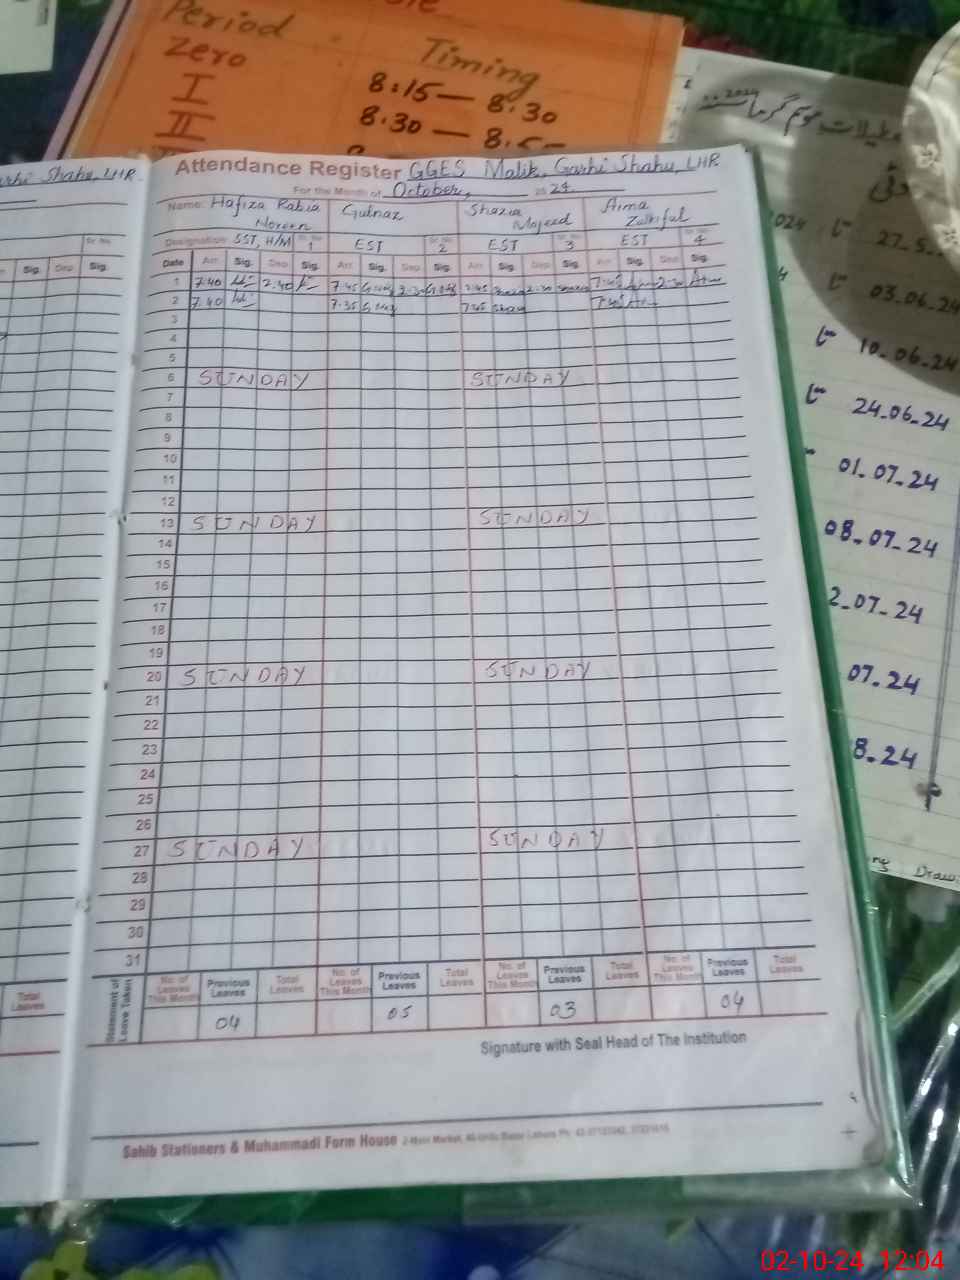 Period Timing
Zero 8:15 — 8.30
I 8.30 —
II
2024
27-5
03.06.24
10.06.24
24.06.24
01.07.24
08.07.24
2-07-24
07.24
8.24
Shahu, LHR.
Attendance Register GGES Malik, Garhi Shahu, LHR
For the Month of October, 2024.
Name: Hafiza Rabia Noreen Gulnaz Shazia Majeed Aima Zulkiful
Designation SST, H/M Sr. No. 1 EST Sr. No. 2 EST Sr. No. 3 EST Sr. No. 4
Date Arr. Sig. Dep. Sig. Arr. Sig. Dep. Sig. Arr. Sig. Dep. Sig. Arr. Sig. Dep. Sig.
1 7.40 2.40 7.45 2.30 7.45 2.30 7.45 2.30
2 7.40 7.35 7.45 7.45
3
4
5
6 SUNDAY SUNDAY
7
8
9
10
11
12
13 SUNDAY SUNDAY
14
15
16
17
18
19
20 SUNDAY SUNDAY
21
22
23
24
25
26
27 SUNDAY SUNDAY
28
29
30
31
Statement of Leave Taken
No. of Leaves This Month Previous Leaves Total Leaves No. of Leaves This Month Previous Leaves Total Leaves No. of Leaves This Month Previous Leaves Total Leaves No. of Leaves This Month Previous Leaves Total Leaves
04 05 03 04
Signature with Seal Head of The Institution
Sahib Stationers & Muhammadi Form House
Sig. Dep. Sig.
Total Leaves
02-10-24 12:04